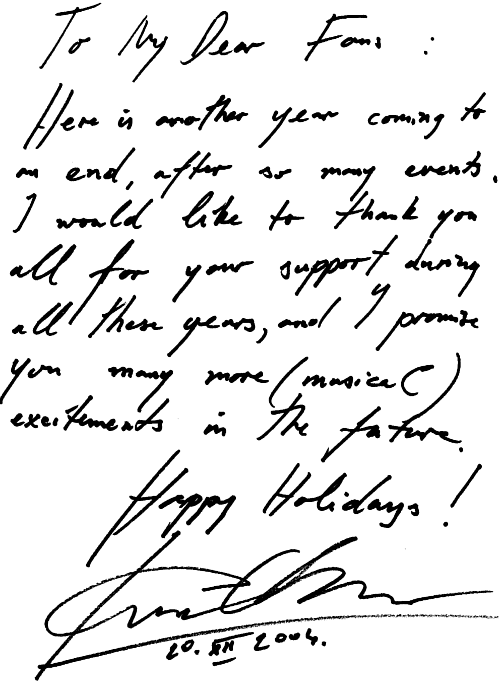 To My Dear Fans :
Here is another year coming to
an end, after so many events.
I would like to thank you
all for your support during
all these years, and I promise
you many more (musical)
excitements in the future.
Happy Holidays!
20. XII 2004.